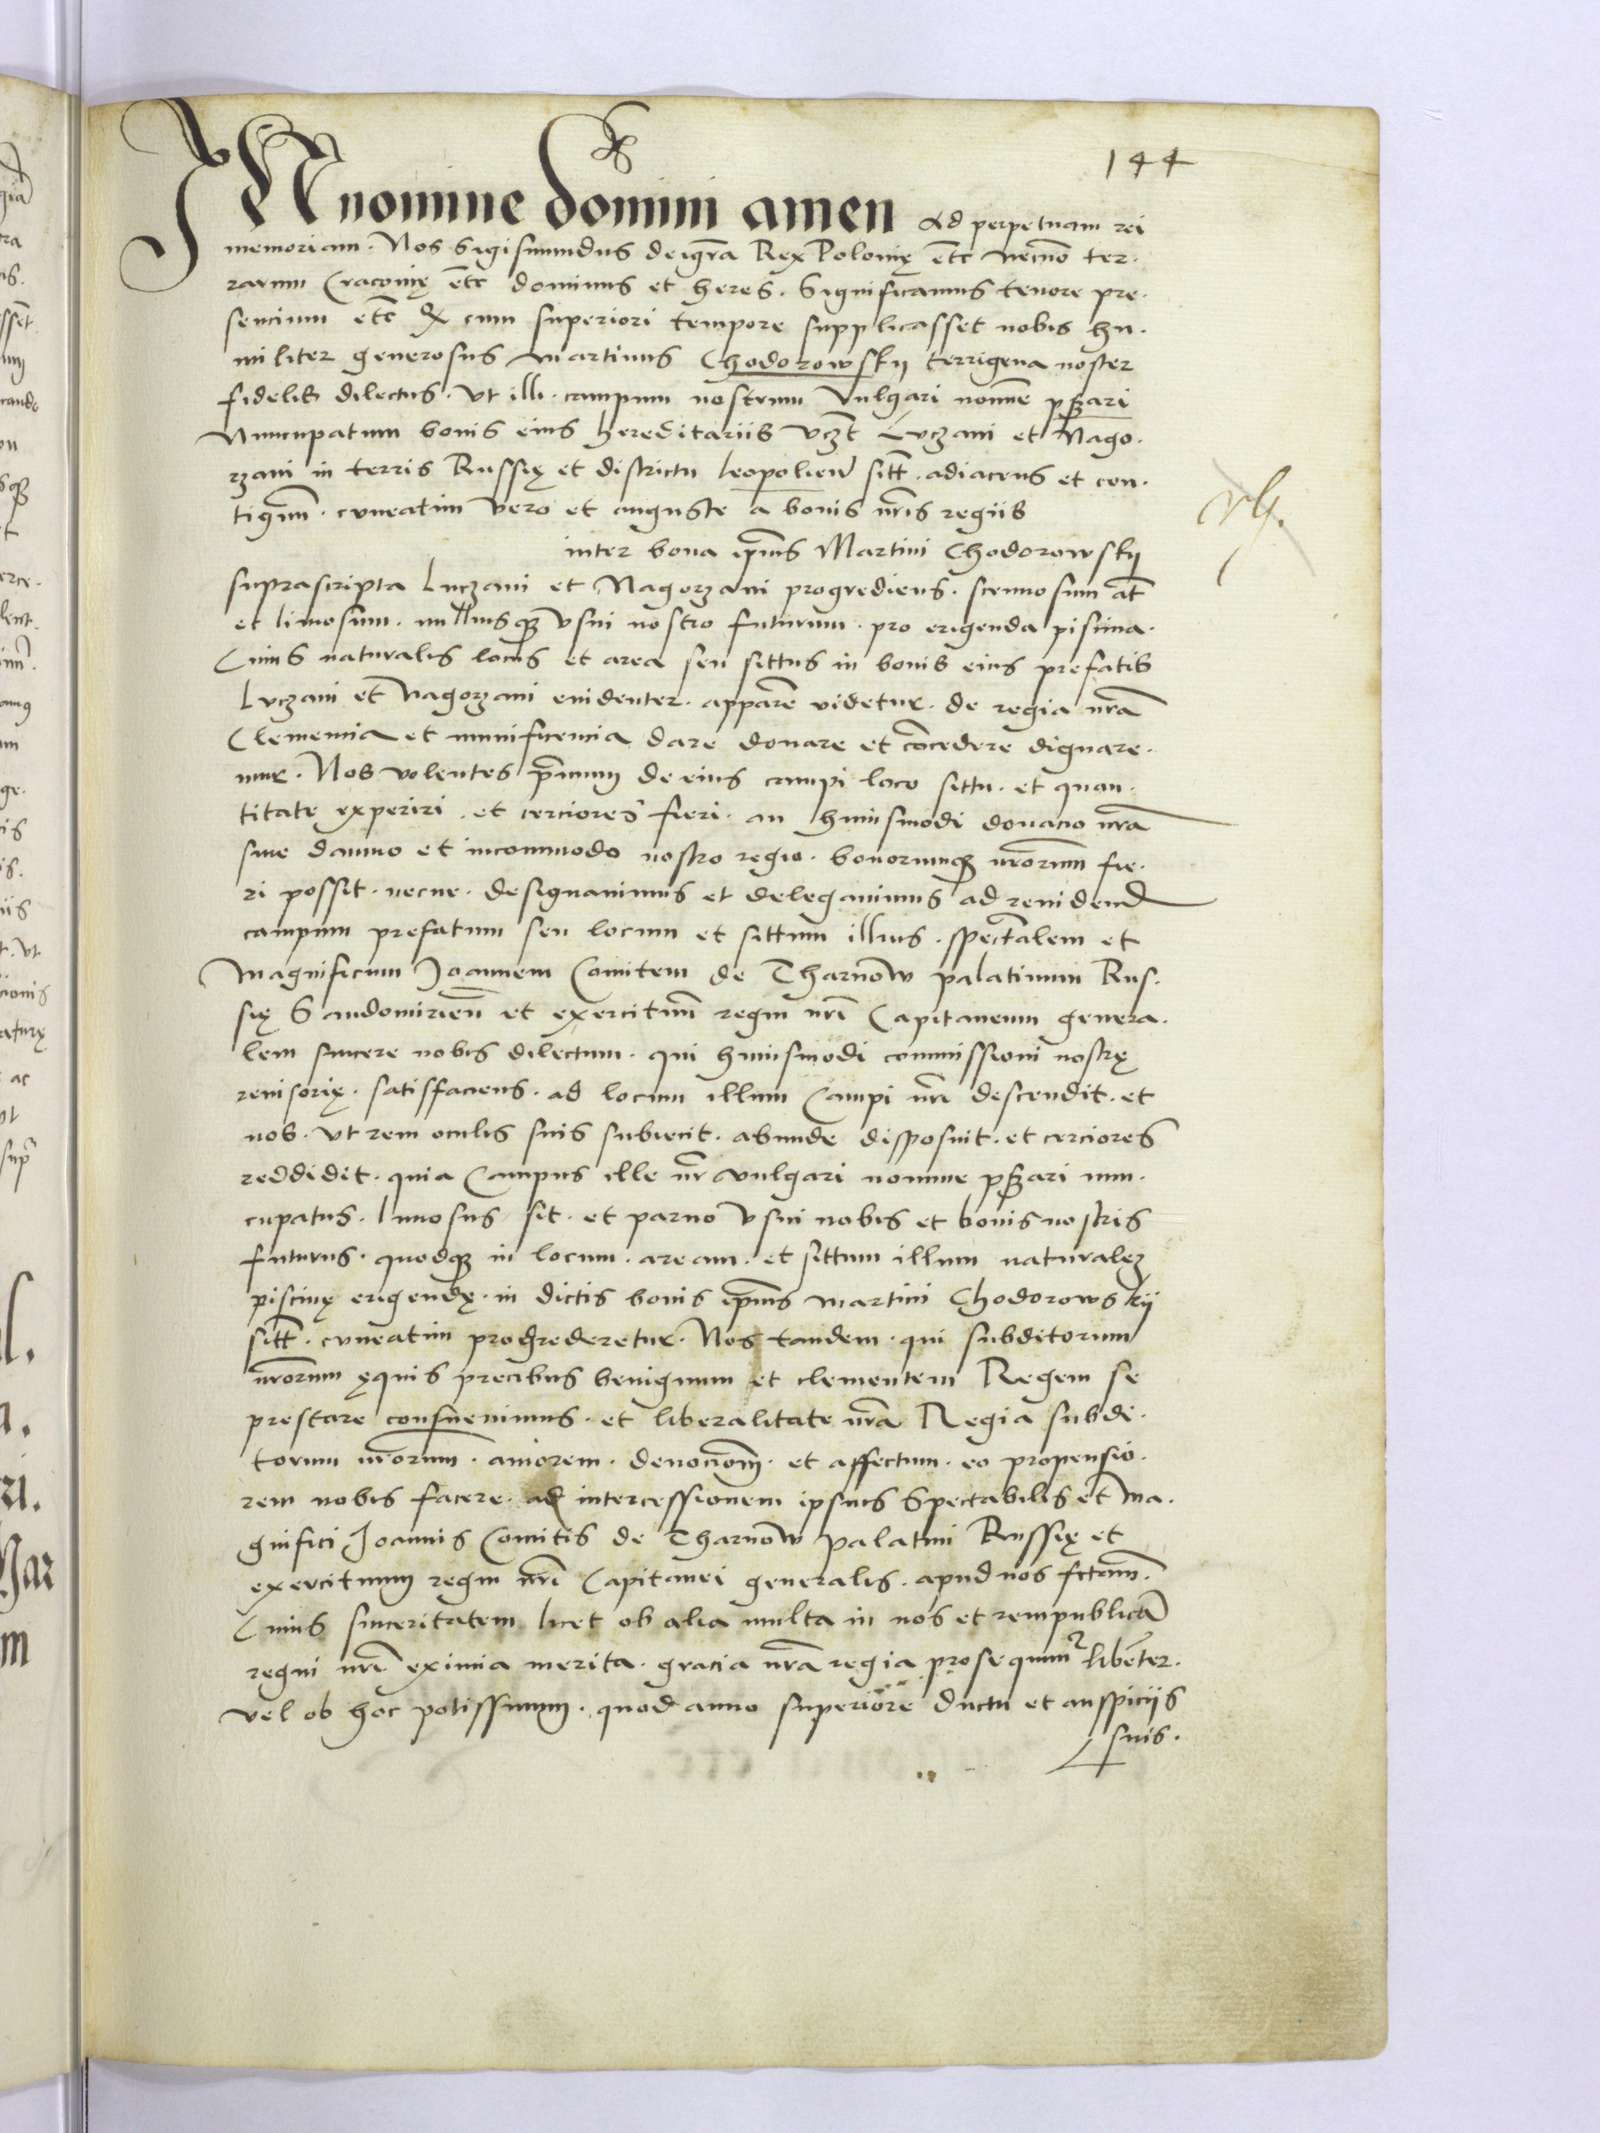 144
IN nomine domini amen Ad perpetuam rei
memoriam. Nos Sigismundus dei gra Rex Polonię etc necno ter.
rarum Cracovię etc dominus et heres. Significamus tenore pre.
sencium etc cum superiori tempore supplicasset nobis hu.
militer generosus Martinus Chodorowsky terrigena noster
fidelis dilectus. Ut illi. campum nostrum Vulgari nomine
Nuncupatum bonis eius hereditariis Luczani et Nago.
rzani in terris Russię et districtu leopolien sitt. adiacens et con.
tiguum. cuneatim Vero et anguste a bonis nris regiis
inter bona ipius Martini Chodorowsky
suprascripta Luczani et Nagorzani progrediens. scenosum at
et limosum. nulliusq usui nostro futurum. pro erigenda piscina.
Cuius naturalis locus et area seu sittus in bonis eius prefatis
Luczani et Nagorzani evidenter. apparere videtur. de regia nra
Clemencia et munificencia dare donare et concedere dignare.
mur. Nos volentes primum de eius campi loco sittu. et quan.
titate experiri. et cerciores fieri. an huiusmodi donacio nra
sine damno et incommodo nostro regio. bonorumq nrorum fie.
ri possit. necne. designavimus et delegavimus ad revidend
campum prefatum seu locum et sittum illius. spectabilem et
Magnificum Joannem Comitem de Tharnow palatinum Rus.
się Sandomirien et exercituum regni nri Capitaneum genera.
lem sincere nobis dilectum. qui huiusmodi commissioni nostrę
revisorię. satisfaciens. ad locum illum Campi nri descendit. et
nos. ut rem oculis suis subiecit. abunde disposuit. et cerciores
reddidit. quia Campus ille nr vulgari nomine nun.
cupatus. limosus sit. et parvo usui nobis et bonis nostris
futurus. quodq in locum. aream. et sittum illum naturalez
piscinę erigendę. in dictis bonis ipius Martini Chodorowskij
sitt. cuneatim progrederetur. Nos tandem. qui subditorum
nrorum ęquis precibus benignum et clementem Regem se
prestare consuevimus. et liberalitate nra Regia subdi.
torum nrorum. amorem. devocionem. et affectum. eo propensio.
rem nobis facere. ad intercessionem ipsius Spectabilis et Ma.
gnifici Joannis Comitis de Tharnow palatini Russię et
exercituum regni nri Capitanei generalis. apud nos fctam.
Cuius sinceritatem licet ob alia multa in nos et rempublica
regni nri eximia merita. gracia nra regia prosequimur libenter.
Vel ob hoc potissimum. quod anno superiore ductu et auspiciis
suis.